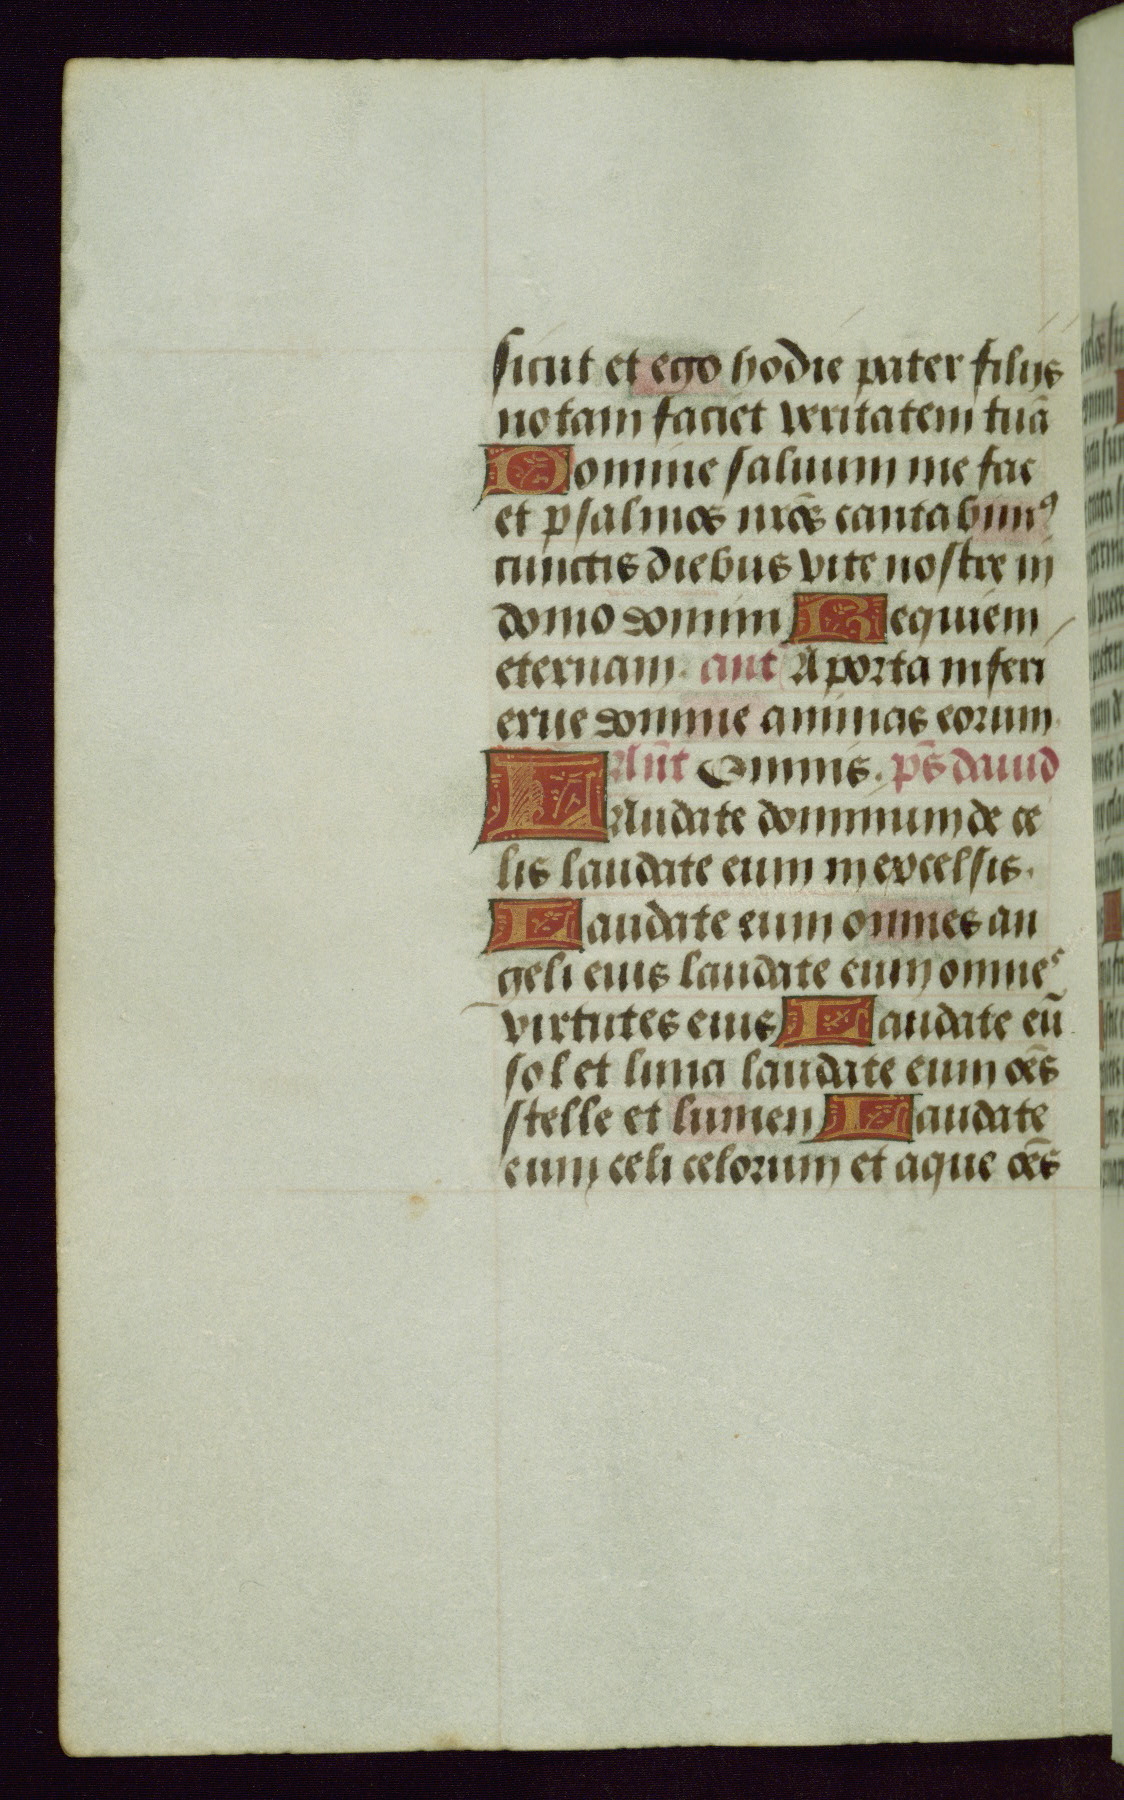 sicut et ego hodie pater filijs
notam faciet veritatem tuā
Domine saluum me fac
et psalmos nrōs cantabimꝰ
cunctis diebus vite nostre in
domo domini Requiem
eternam. ant A porta inferi
erue domine animas eorum.
Añt Omnis. ps̄ dauid
LAudate dominum de ce
lis laudate eum in excelsis.
Laudate eum omnes an
geli eius laudate eum omnes
virtutes eius Laudate eū
sol et luna laudate eum oēs
stelle et lumen Laudate
eum celi celorum et aque oēs